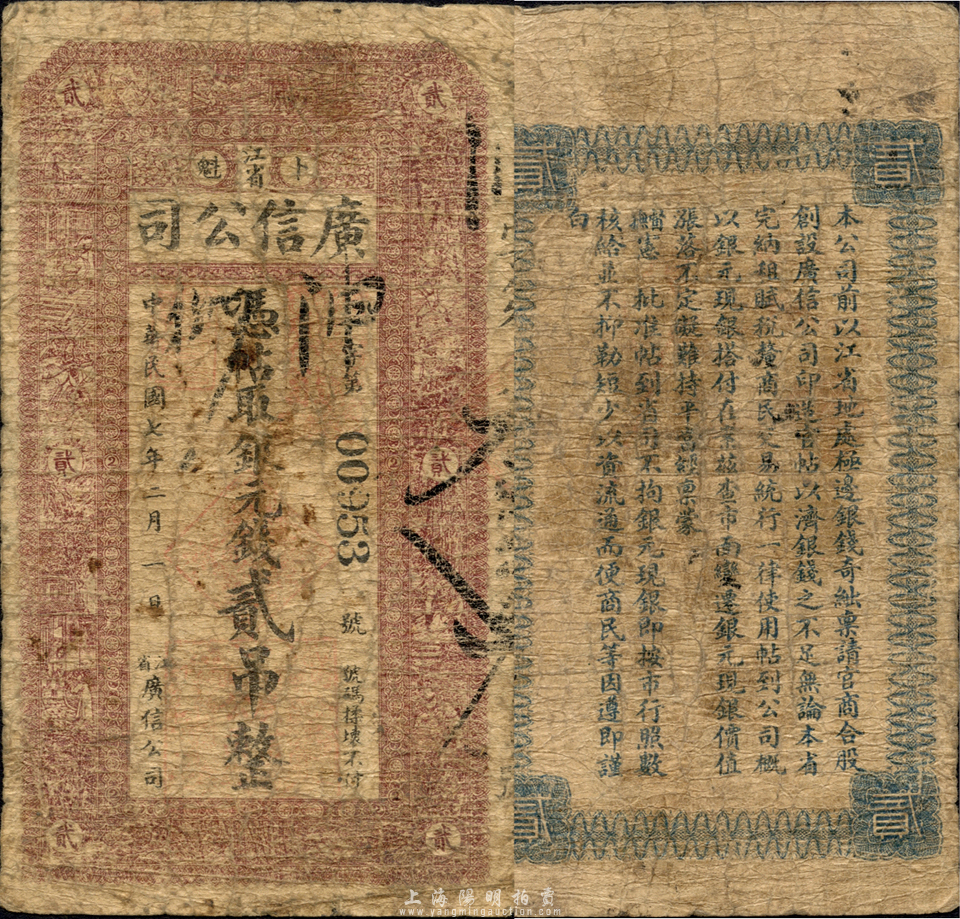 貳
貳
卜
江省
魁
廣信公司
第
00953
號
號碼擦壞不付
憑帖取銀元錢貳吊整
中華民國七年二月一日
江省廣信公司
貳
貳
貳
貳
貳
貳
本公司前以江省地處極邊銀錢奇絀稟請官商合股
創設廣信公司印造官帖以濟銀錢之不足無論本省
完納租賦稅釐商民交易統行一律使用帖到公司概
以銀元現銀搭付在案茲查市面變遷銀元現銀價值
張落不定礙難持平稟蒙
憲批准帖到省司不拘銀元現銀即按市行照數
核給並不抑勒短少以資流通而便商民等因遵即謹
白
貳
貳
上海陽明拍賣
www.yangmingauction.com